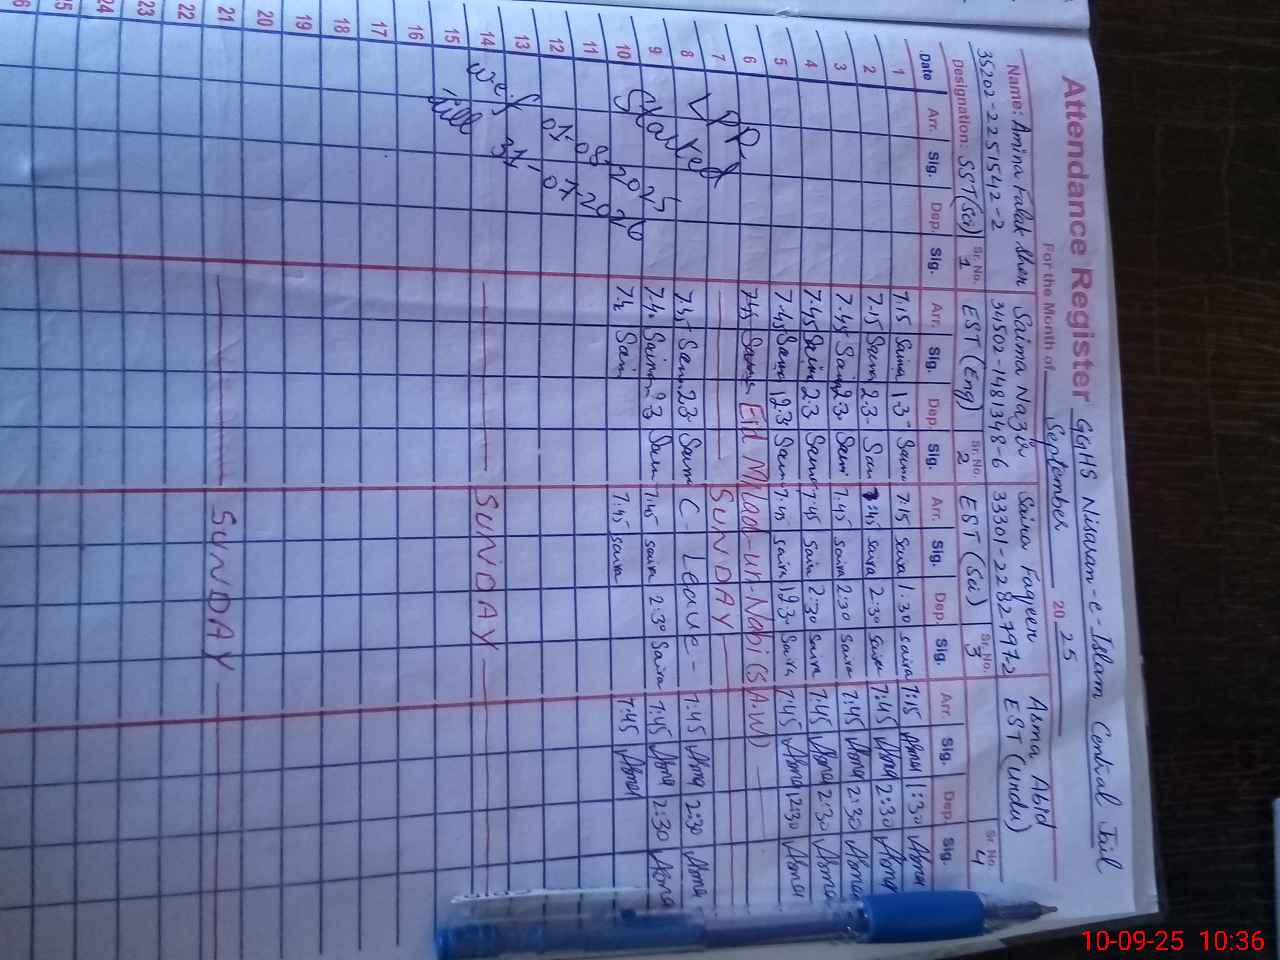 Attendance Register GGHS Nisaran-e-Islam Central Jail
For the Month of September 2025
Name: Amina Falak Sher Saima Nazir Saira Faqeer Asma Abid
35202-2251542-2 34502-1481348-6 33301-2282797-2 EST (Urdu)
Designation: SST (Sci) Sr. No. 1 EST (Eng) Sr. No. 2 EST (Sci) Sr. No. 3 Sr. No. 4
Date Arr. Sig. Dep. Sig. Arr. Sig. Dep. Sig. Arr. Sig. Dep. Sig. Arr. Sig. Dep. Sig.
1 7:15 Saima 1:3 Saima 7:15 Saira 1:30 Saira 7:15 Asma 1:30 Asma
2 7:15 Saima 2:3 Saim 7:45 Saira 2:30 Saira 7:45 Asma 2:30 Asma
3 7:45 Saim 2:3 Saim 7:45 Saira 2:30 Saira 7:45 Asma 2:30 Asma
4 7:45 Saim 2:3 Saima 7:45 Saira 2:30 Saira 7:45 Asma 2:30 Asma
5 7:45 Saima 12:3 Saim 7:45 Saira 12:30 Saira 7:45 Asma 12:30 Asma
6 7:45 Saima Eid Milad-un-Nabi (S.A.W)
7 SUNDAY
8 7:45 Saim 2:3 Saim C - Leave - 7:45 Asma 2:30 Asma
9 7:45 Saima 2:3 Saim 7:45 Saira 2:30 Saira 7:45 Asma 2:30 Asma
10 Saim 7:45 Saira 7:45 Asma
11
12
13
14 SUNDAY
15
16
17
18
19
20
21 SUNDAY
22
23
24
LPR
Started
w.e.f 01-08-2025
till 31-07-2026
10-09-25 10:36